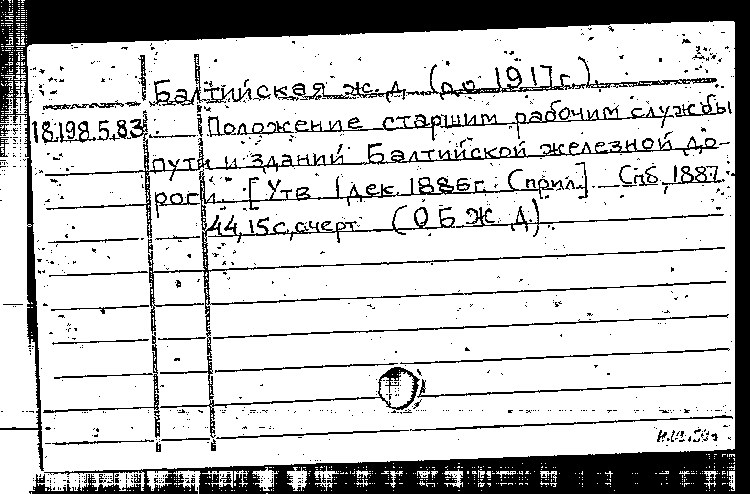 Балтийская ж.д. (до 1917г.).
18.198.5.83. Положение старшим рабочим службы
пути и зданий Балтийской железной до-
роги. [Утв 1 дек. 1886г. (прил.] Спб, 1887.
44, 15 с, очерт (ОБЖД)